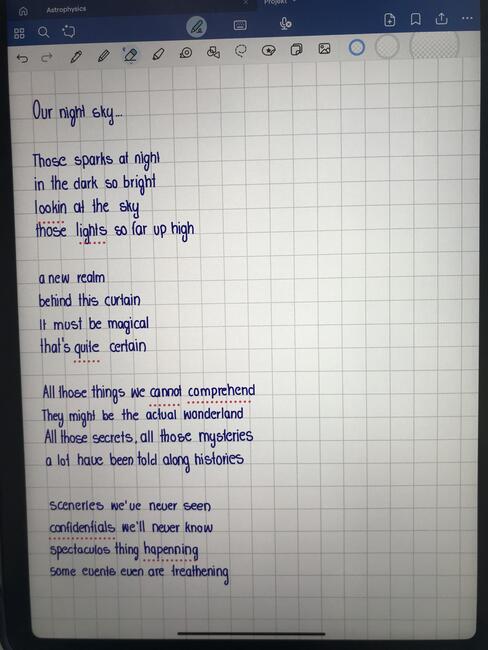 Astrophysics
Projekt
Our night sky...
Those sparks at night
in the dark so bright
lookin at the sky
those lights so far up high
a new realm
behind this curtain
It must be magical
that's quite certain
All those things we cannot comprehend
They might be the actual wonderland
All those secrets, all those mysteries
a lot have been told along histories
sceneries we've never seen
confidentials we'll never know
spectaculos thing hapenning
some events even are treathening